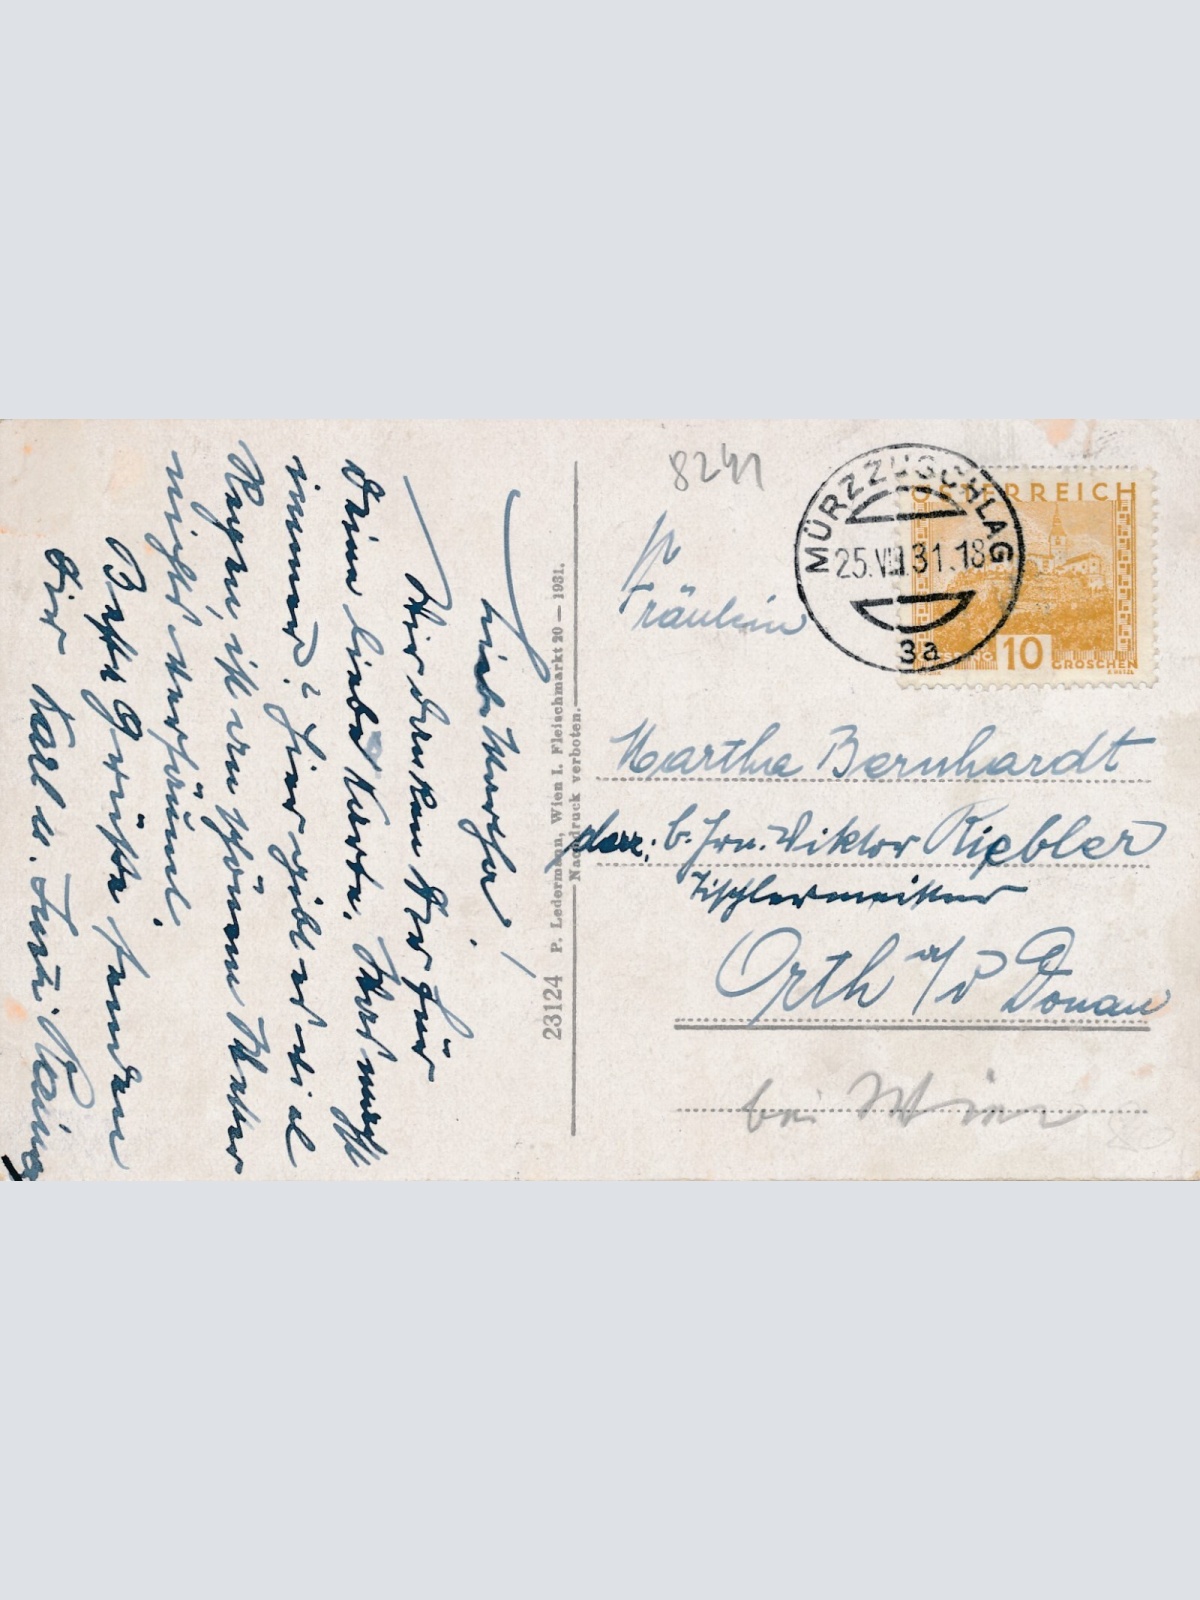 Liebe Martha!
Wir danken Dir für
Deine liebe Karte. Was machst
immer? Hier gibt es viel
Regen, ist ein schönes Wetter
nichts versäumt.
Beste Grüße senden
Dir Karl u.
23124 P. Ledermann, Wien I. Fleischmarkt 20 — 1931.
Nachdruck verboten.
8241
MÜRZZUSCHLAG
25.VIII.31.18
3a
ÖSTERREICH
10 GROSCHEN
Fräulein
Martha Bernhardt
derz: b. Hrn. Viktor Kiebler
Tischlermeister
Orth a/d Donau
bei Wien